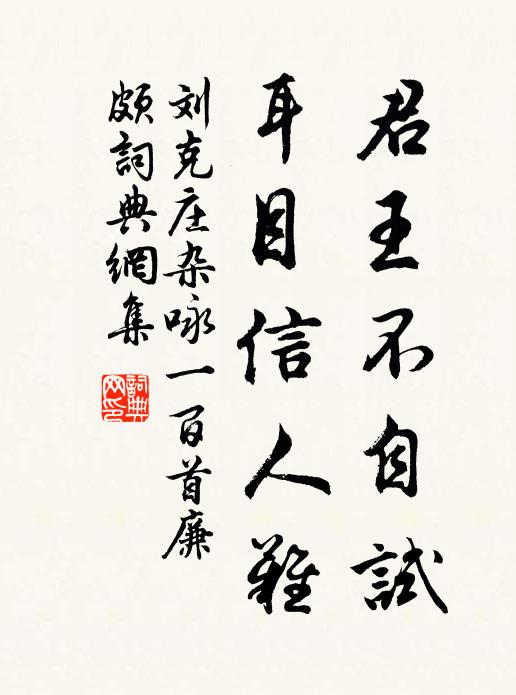 君王不自試
耳目信人難
刘克庄杂咏一百首廉
頗詞典網集
詞典
网印